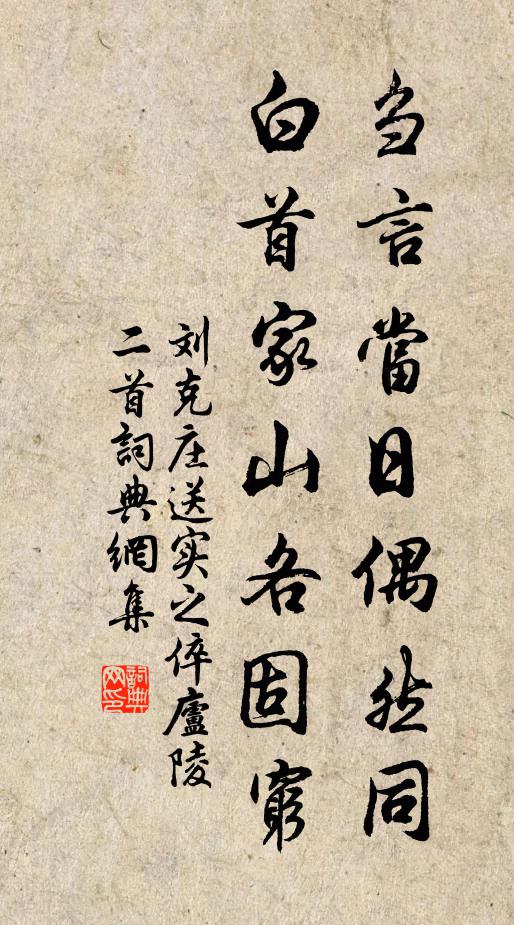 刍言當日偶然同
白首家山各固窮
刘克庄送实之倅廬陵
二首詞典網集
詞典
网印